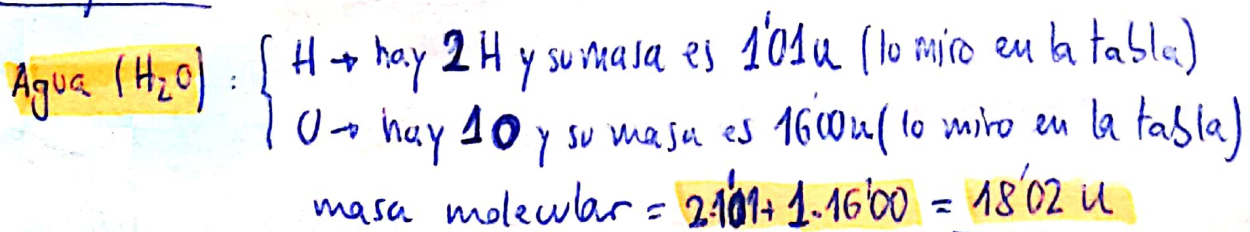 Agua (H₂O) : { H → hay 2 H y su masa es 1'01u (lo miro en la tabla)
O → hay 1 O y su masa es 16'00u (lo miro en la tabla)
masa molecular = 2·1'01 + 1·16'00 = 18'02 u